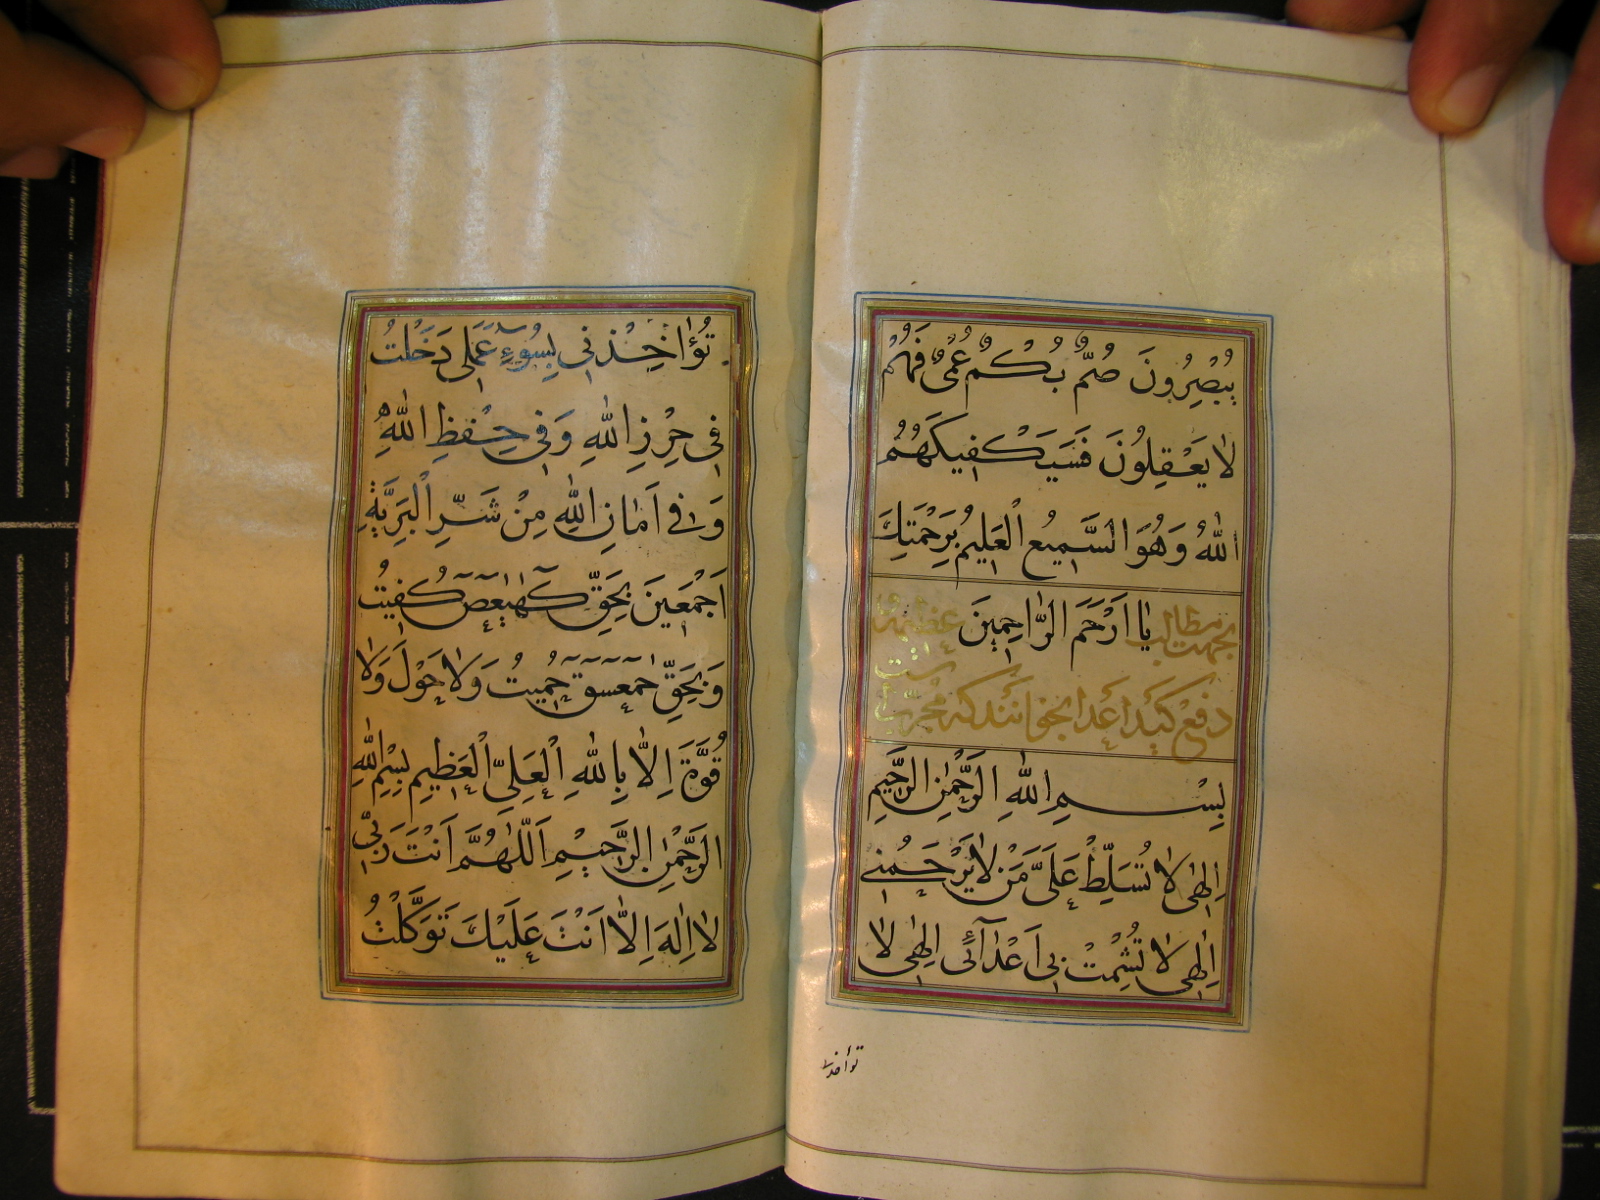 يُبْصِرُونَ صُمٌّ بُكْمٌ عُمْىٌ فَهُمْ
لَا يَعْقِلُونَ فَسَيَكْفِيكَهُمُ
اللهُ وَهُوَ السَّمِيعُ الْعَلِيمُ بِرَحْمَتِكَ
يَا اَرْحَمَ الرَّاحِمِينَ
بجهت مطالب عظيمه
دفع كيد اعدا بخوانند كه مجرب
بِسْمِ اللهِ الرَّحْمٰنِ الرَّحِيمِ
اِلٰهِى لَا تُسَلِّطْ عَلَىَّ مَنْ لَا يَرْحَمُنِى
اِلٰهِى لَا تُشْمِتْ بِى اَعْدَآئِى اِلٰهِى لَا
تؤاخذنى
تُؤَاخِذْنِى بِسُوۤءِ عَمَلِى دَخَلْتُ
فِى حِرْزِ اللهِ وَفِى حِفْظِ اللهِ
وَفِى اَمَانِ اللهِ مِنْ شَرِّ الْبَرِيَّةِ
اَجْمَعِينَ بِحَقِّ كۤهٰيٰعۤصۤ كُفِيتُ
وَبِحَقِّ حٰمۤعۤسۤقۤ حُمِيتُ وَلَا حَوْلَ وَلَا
قُوَّةَ اِلَّا بِاللهِ الْعَلِىِّ الْعَظِيمِ بِسْمِ اللهِ
الرَّحْمٰنِ الرَّحِيمِ اَللّٰهُمَّ اَنْتَ رَبِّى
لَا اِلٰهَ اِلَّا اَنْتَ عَلَيْكَ تَوَكَّلْتُ